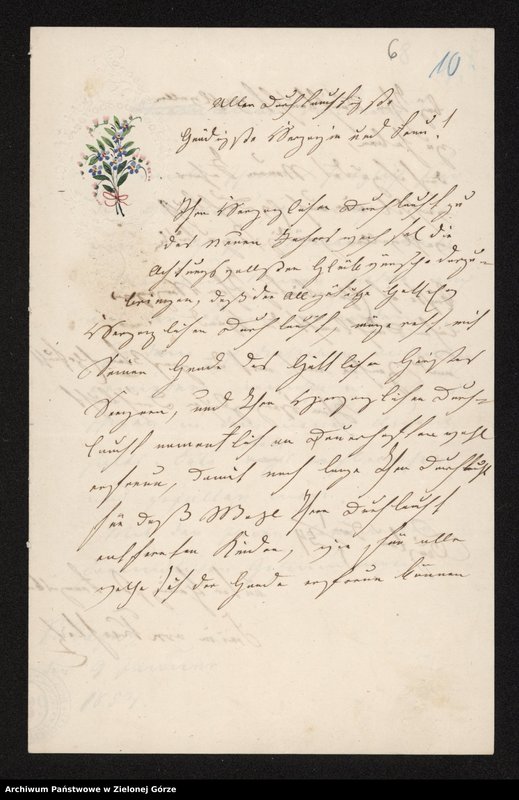 6
10
Aller Durchlauchtigste
Gnädigste Herzogin und Frau!
Ihro Herzoglichen Durchlaucht zu
des Neuen Jahres die
Achtungsvollsten Glückwünsche darzu-
bringen, daß der Allgütige Gott
Herzoglichen Durchlaucht möge mit
Seiner Gnade des Göttlichen Geistes
Seegnen, und Ihro Herzoglichen Durch-
laucht namentlich an Dauerhaften wohl
erfreuen, damit noch lange Ihro Durchlaucht
für daß Wohl Ihro Durchlaucht
entfernten Kinder, wie für alle
welche sich der Gnade erfreuen können
Archiwum Państwowe w Zielonej Górze